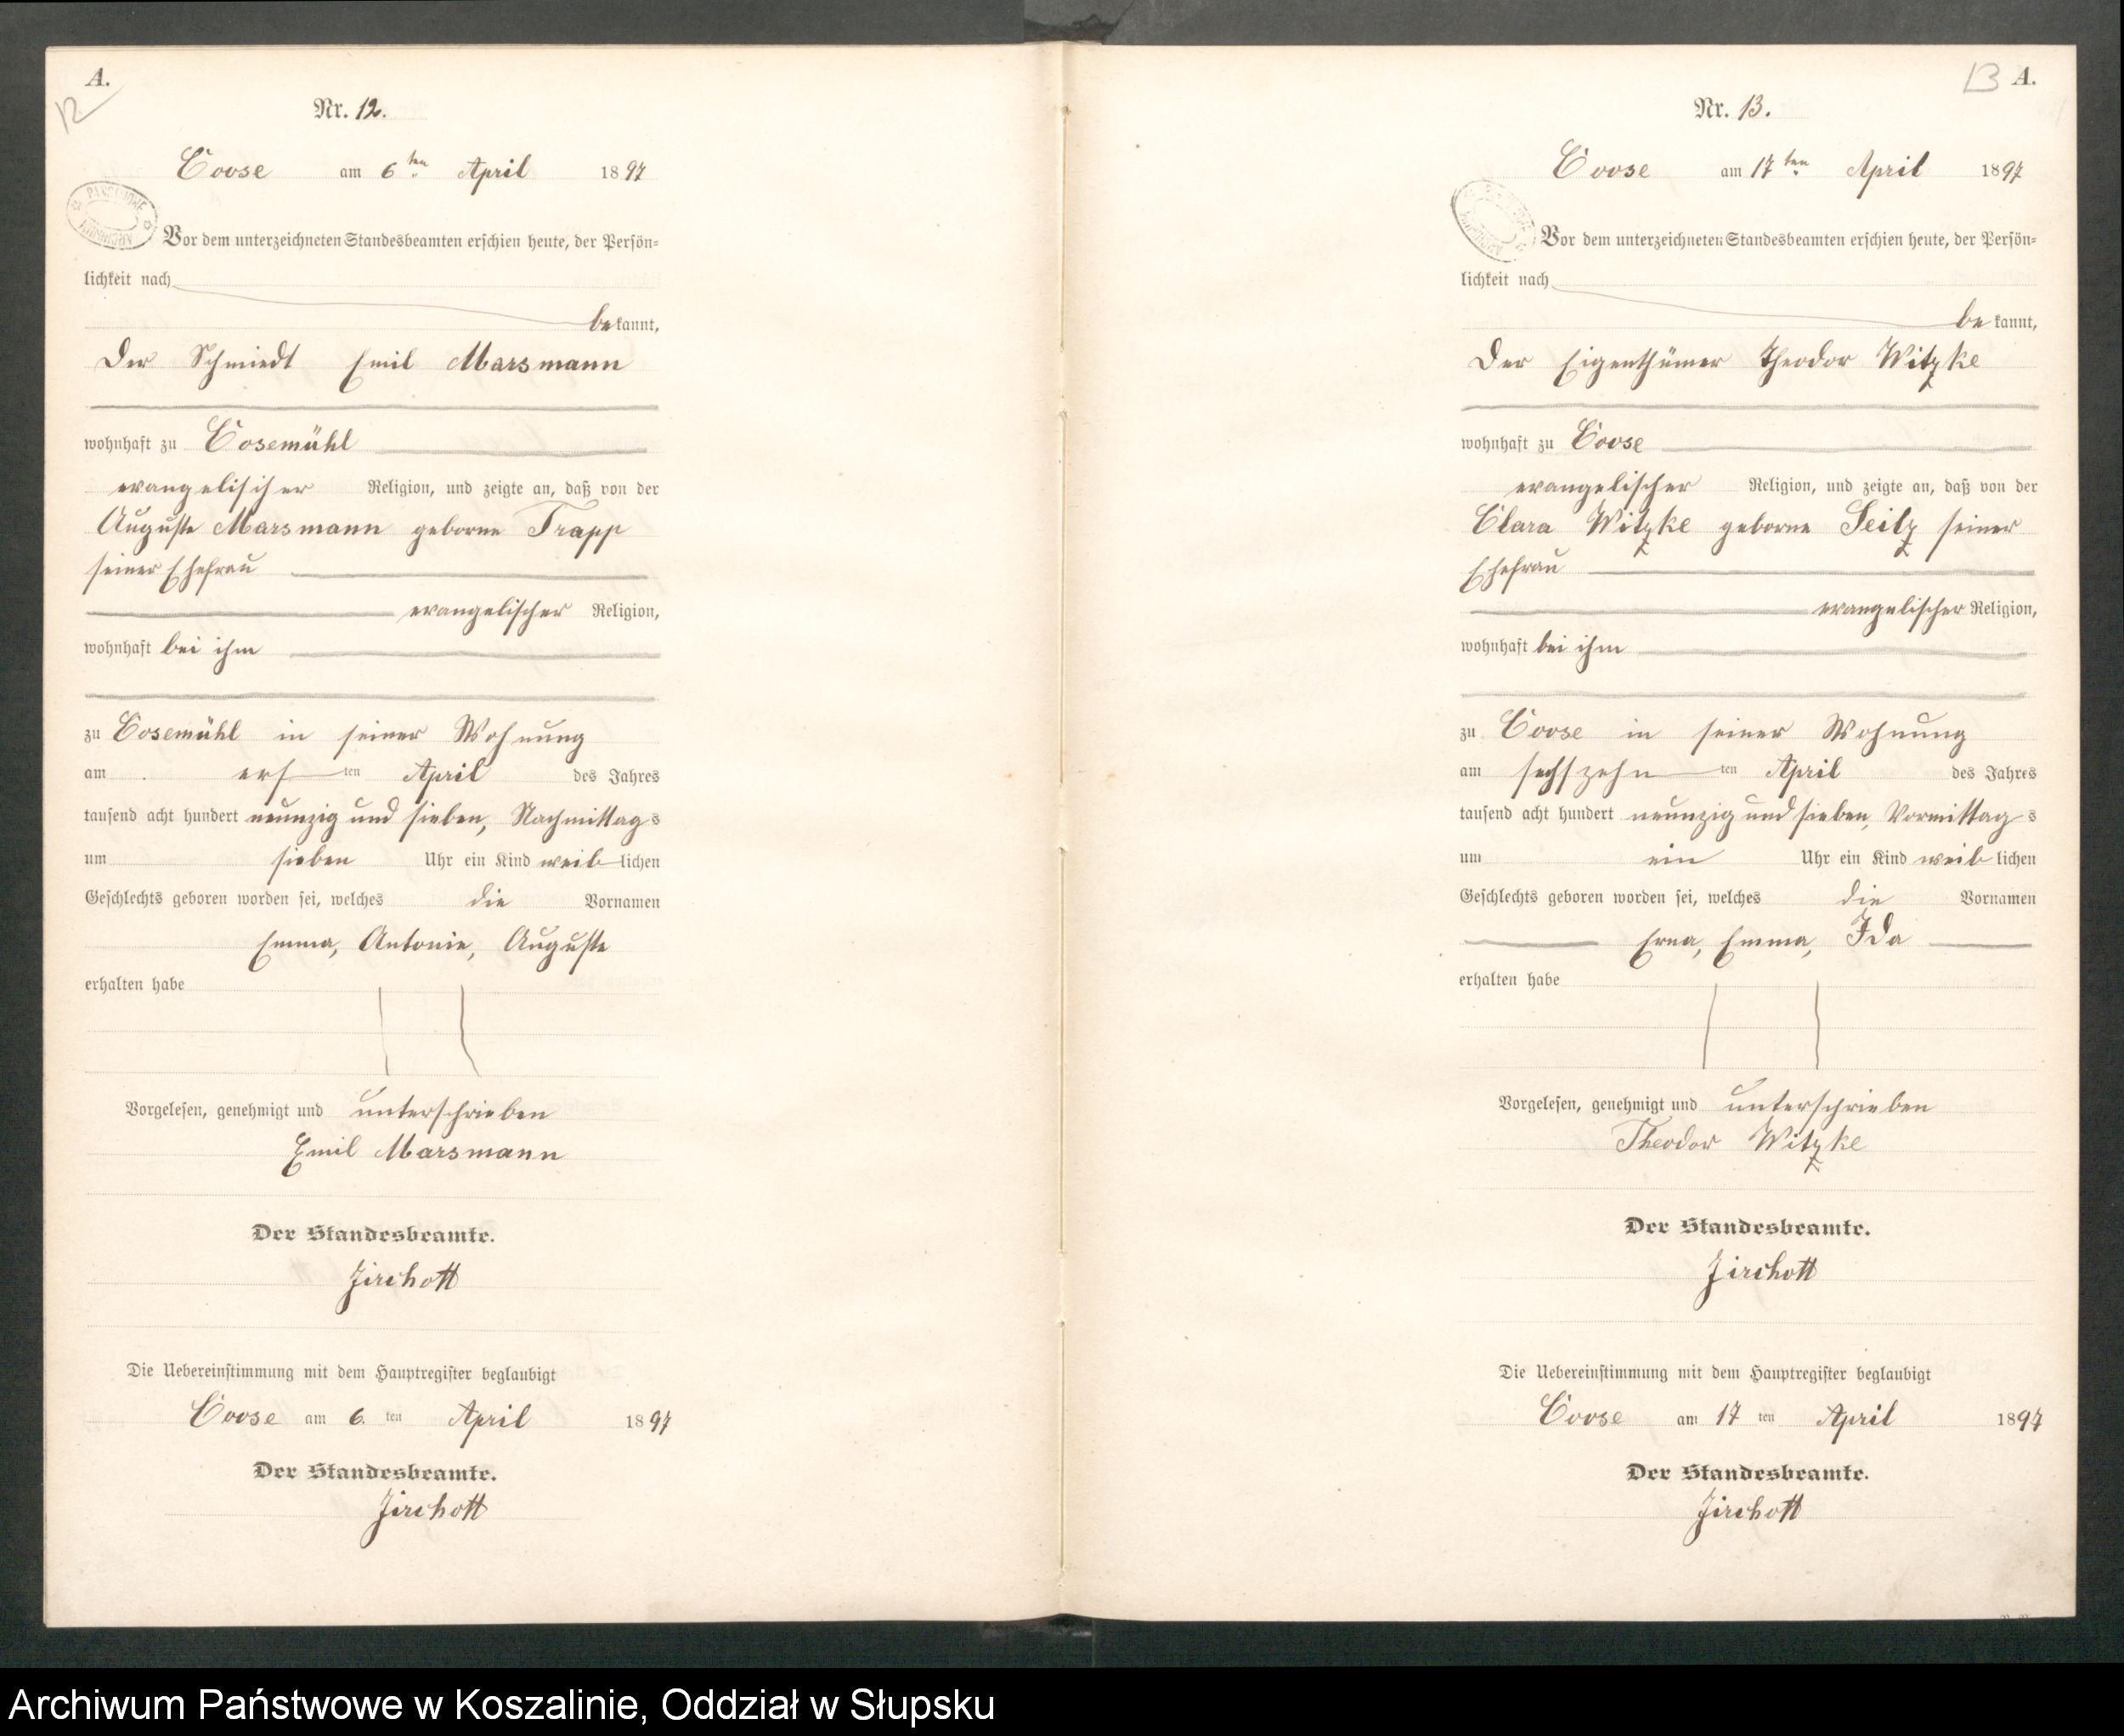 A.
12
Nr. 12.
Coose am 6ten April 1897
Vor dem unterzeichneten Standesbeamten erschien heute, der Persön-
lichkeit nach
bekannt,
Der Schmiedt Emil Marsmann
wohnhaft zu Cosemühl
evangelischer Religion, und zeigte an, daß von der
Auguste Marsmann geborne Trapp
seiner Ehefrau
evangelischer Religion,
wohnhaft bei ihm
zu Cosemühl in seiner Wohnung
am ersten April des Jahres
tausend acht hundert neunzig und sieben, Nachmittags
um sieben Uhr ein Kind weiblichen
Geschlechts geboren worden sei, welches die Vornamen
Emma, Antonie, Auguste
erhalten habe
Vorgelesen, genehmigt und unterschrieben
Emil Marsmann
Der Standesbeamte.
Zirchott
Die Uebereinstimmung mit dem Hauptregister beglaubigt
Coose am 6. ten April 1897
Der Standesbeamte.
Zirchott
13 A.
Nr. 13.
Coose am 17ten April 1897
Vor dem unterzeichneten Standesbeamten erschien heute, der Persön-
lichkeit nach
bekannt,
Der Eigenthümer Theodor Witzke
wohnhaft zu Coose
evangelischer Religion, und zeigte an, daß von der
Clara Witzke geborne Seitz seiner
Ehefrau
evangelischer Religion,
wohnhaft bei ihm
zu Coose in seiner Wohnung
am sechszehnten April des Jahres
tausend acht hundert neunzig und sieben, Vormittags
um ein Uhr ein Kind weiblichen
Geschlechts geboren worden sei, welches die Vornamen
Erna, Emma, Ida
erhalten habe
Vorgelesen, genehmigt und unterschrieben
Theodor Witzke
Der Standesbeamte.
Zirchott
Die Uebereinstimmung mit dem Hauptregister beglaubigt
Coose am 17 ten April 1897
Der Standesbeamte.
Zirchott
Archiwum Państwowe w Koszalinie, Oddział w Słupsku